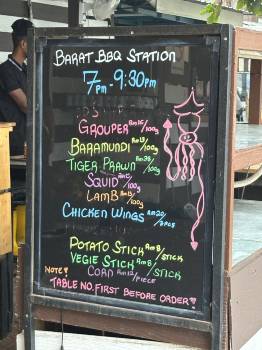 BARAT BBQ STATION
7PM - 9:30PM
GROUPER RM15/100g
BARAMUNDI RM13/100g
TIGER PRAWN RM38/100g
SQUID /100g
LAMB /100g
CHICKEN WINGS RM20/2PCS
POTATO STICK RM8/STICK
VEGIE STICK RM8/STICK
NOTE! CORN RM12/PIECE
TABLE NO. FIRST BEFORE ORDER